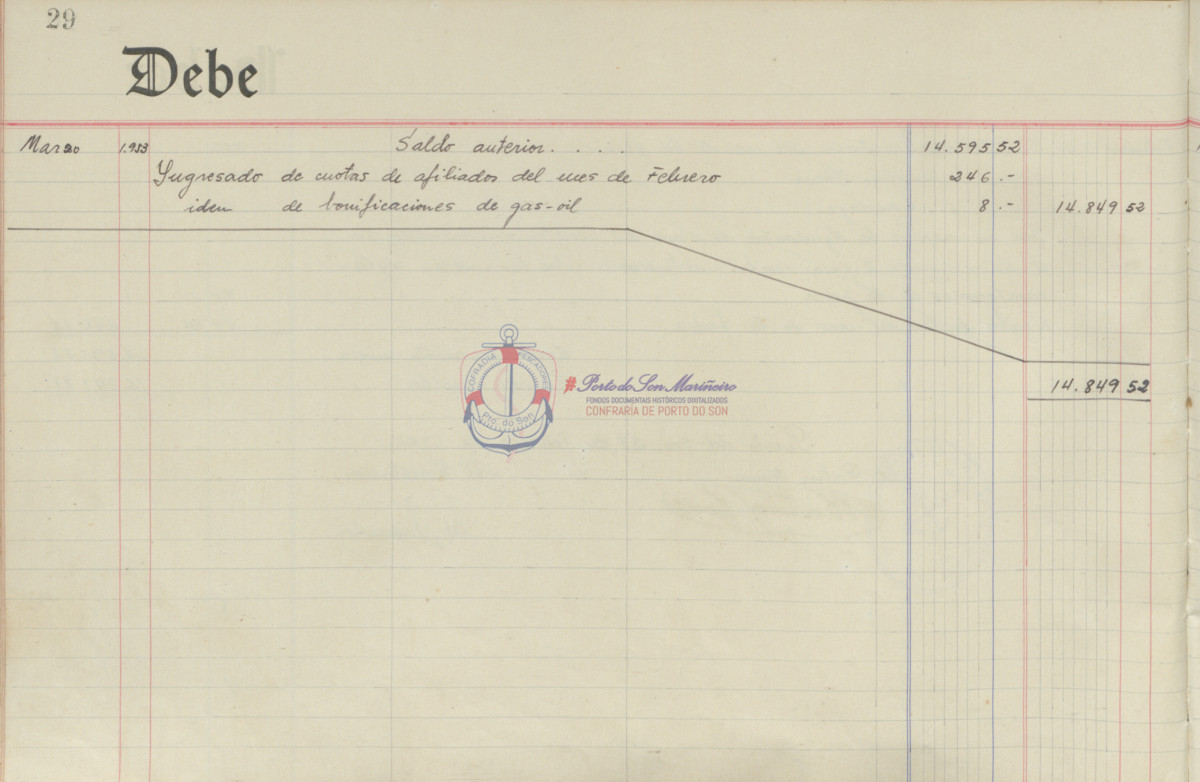 29
Debe
Marzo 1.953 Saldo anterior. . . . 14.595 52
Yngresado de cuotas de afiliados del mes de Febrero 246.-
iden de bonificaciones de gas-oil 8.- 14.849 52
14.849 52
COFRADIA PESCADORES
Pto. do Son
#Porto do Son Mariñeiro
FONDOS DOCUMENTAIS HISTÓRICOS DIXITALIZADOS
CONFRARIA DE PORTO DO SON